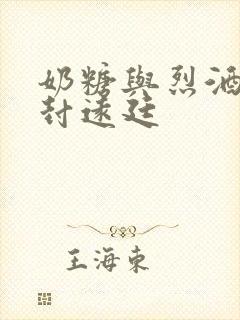 奶糖與烈酒
封遠廷
王海東